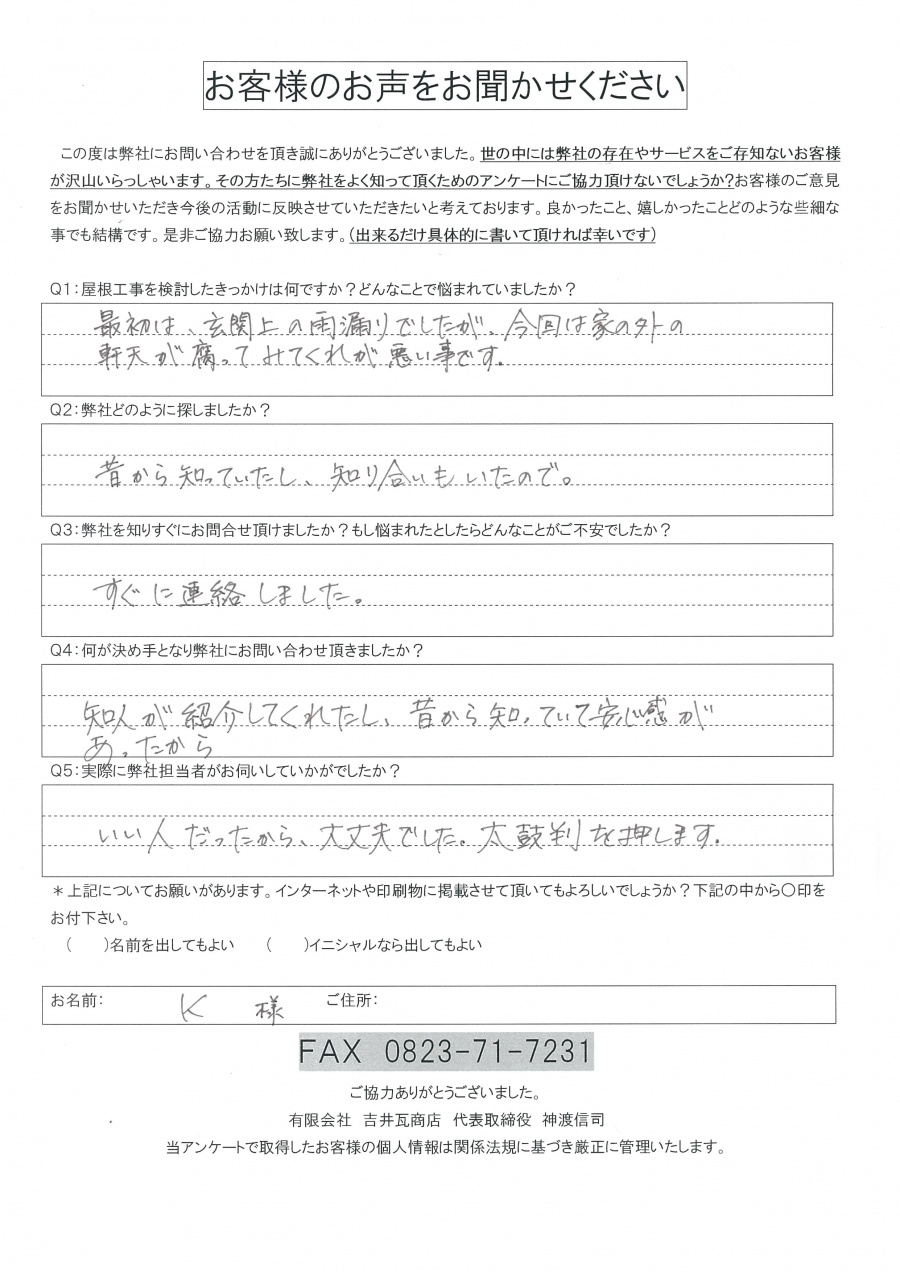 お客様のお声をお聞かせください
この度は弊社にお問い合わせを頂き誠にありがとうございました。世の中には弊社の存在やサービスをご存知ないお客様
が沢山いらっしゃいます。その方たちに弊社をよく知って頂くためのアンケートにご協力頂けないでしょうか?お客様のご意見
をお聞かせいただき今後の活動に反映させていただきたいと考えております。良かったこと、嬉しかったことどのような些細な
事でも結構です。是非ご協力お願い致します。(出来るだけ具体的に書いて頂ければ幸いです)
Q1:屋根工事を検討したきっかけは何ですか?どんなことで悩まれていましたか?
最初は、玄関上の雨漏りでしたが、今回は家の外の
軒天が腐ってみてくれが悪い事です。
Q2:弊社どのように探しましたか?
昔から知っていたし、知り合いもいたので。
Q3:弊社を知りすぐにお問合せ頂けましたか?もし悩まれたとしたらどんなことがご不安でしたか?
すぐに連絡しました。
Q4:何が決め手となり弊社にお問い合わせ頂きましたか?
知人が紹介してくれたし、昔から知っていて安心感が
あったから
Q5:実際に弊社担当者がお伺いしていかがでしたか?
いい人だったから、大丈夫でした。太鼓判を押します。
*上記についてお願いがあります。インターネットや印刷物に掲載させて頂いてもよろしいでしょうか?下記の中から〇印を
お付下さい。
(　　)名前を出してもよい　　(　　)イニシャルなら出してもよい
お名前:　K　様　ご住所:
FAX 0823-71-7231
ご協力ありがとうございました。
有限会社　吉井瓦商店　代表取締役　神渡信司
当アンケートで取得したお客様の個人情報は関係法規に基づき厳正に管理いたします。